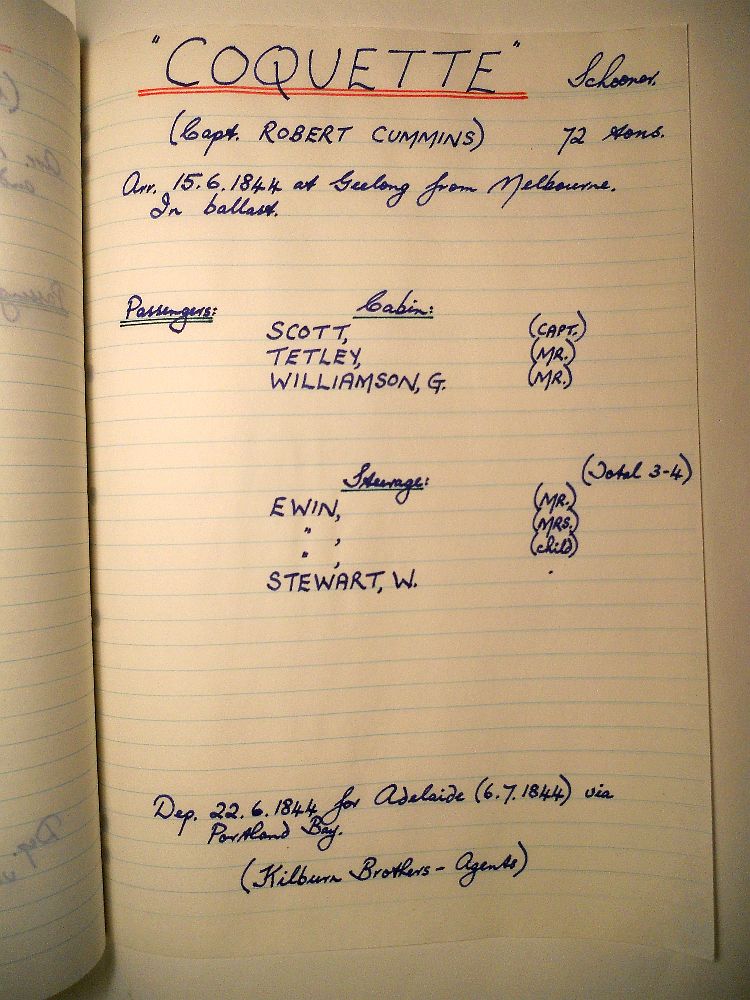 "COQUETTE" Schooner.
(Capt. ROBERT CUMMINS) 72 tons.
Arr. 15.6.1844 at Geelong from Melbourne.
In ballast.
Passengers: Cabin:
SCOTT, (CAPT.)
TETLEY, (MR.)
WILLIAMSON, G. (MR.)
(Total 3-4)
Steerage:
EWIN, (MR.)
" , (MRS.)
" , (child)
STEWART, W. .
Dep. 22.6.1844 for Adelaide (6.7.1844) via
Portland Bay.
(Kilburn Brothers - Agents)